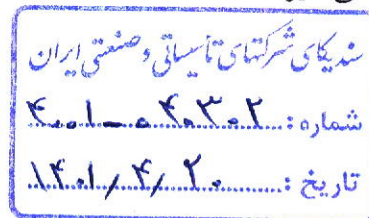 سندیکای شرکتهای تأسیساتی و صنعتی ایران
شماره: ۴۰۰۱-۰۴۳۰۲
تاریخ: ۱۴۰۱/۴/۲۰